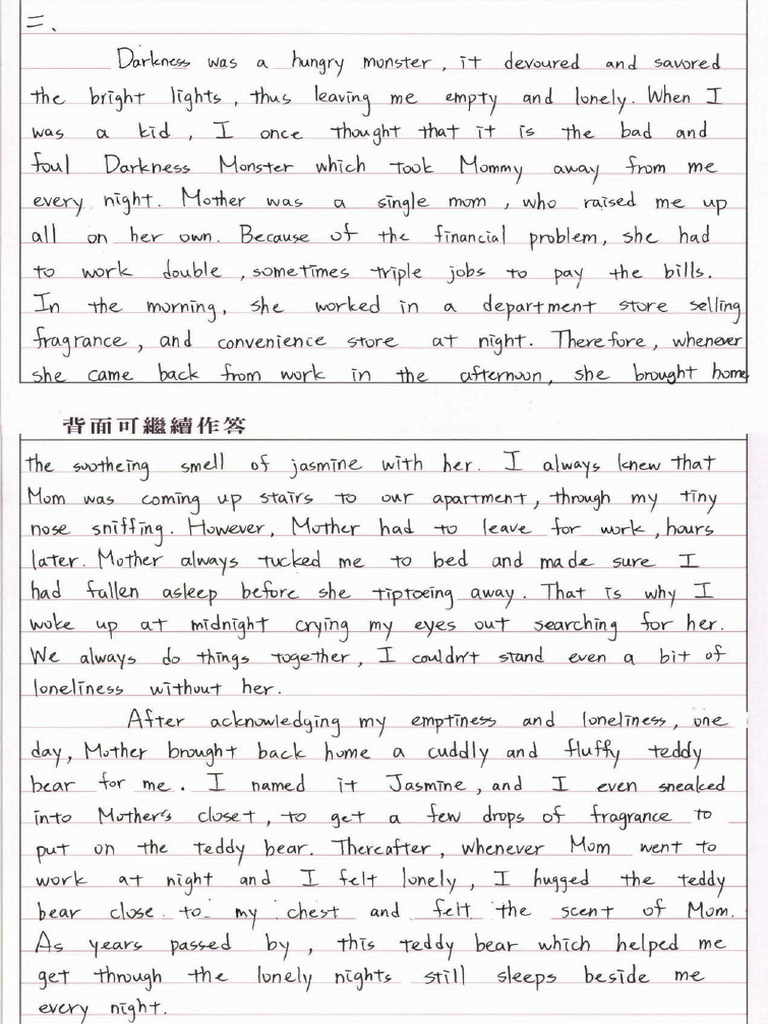 二、
Darkness was a hungry monster, it devoured and savored
the bright lights, thus leaving me empty and lonely. When I
was a kid, I once thought that it is the bad and
foul Darkness Monster which took Mommy away from me
every night. Mother was a single mom, who raised me up
all on her own. Because of the financial problem, she had
to work double, sometimes triple jobs to pay the bills.
In the morning, she worked in a department store selling
fragrance, and convenience store at night. Therefore, whenever
she came back from work in the afternoon, she brought home
背面可繼續作答
the sootheing smell of jasmine with her. I always knew that
Mom was coming up stairs to our apartment, through my tiny
nose sniffing. However, Mother had to leave for work, hours
later. Mother always tucked me to bed and made sure I
had fallen asleep before she tiptoeing away. That is why I
woke up at midnight crying my eyes out searching for her.
We always do things together, I couldn't stand even a bit of
loneliness without her.
After acknowledging my emptiness and loneliness, one
day, Mother brought back home a cuddly and fluffy teddy
bear for me. I named it Jasmine, and I even sneaked
into Mother's closet, to get a few drops of fragrance to
put on the teddy bear. Thereafter, whenever Mom went to
work at night and I felt lonely, I hugged the teddy
bear close to my chest and felt the scent of Mom.
As years passed by, this teddy bear which helped me
get through the lonely nights still sleeps beside me
every night.